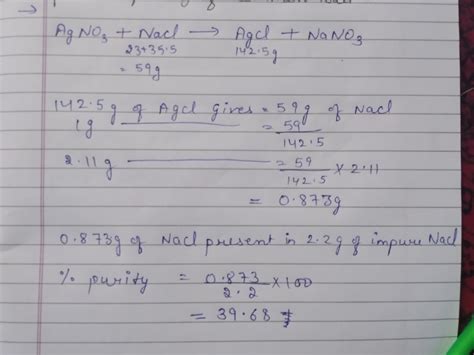 AgNO3 + Nacl → Agcl + NaNO3
23+35.5 142.5g
= 59g
142.5g of Agcl gives = 59g of Nacl
1g = 59/142.5
2.11g = 59/142.5 × 2.11
= 0.873g
0.873g of Nacl present in 2.2g of impure Nacl
% purity = 0.873/2.2 × 100
= 39.68